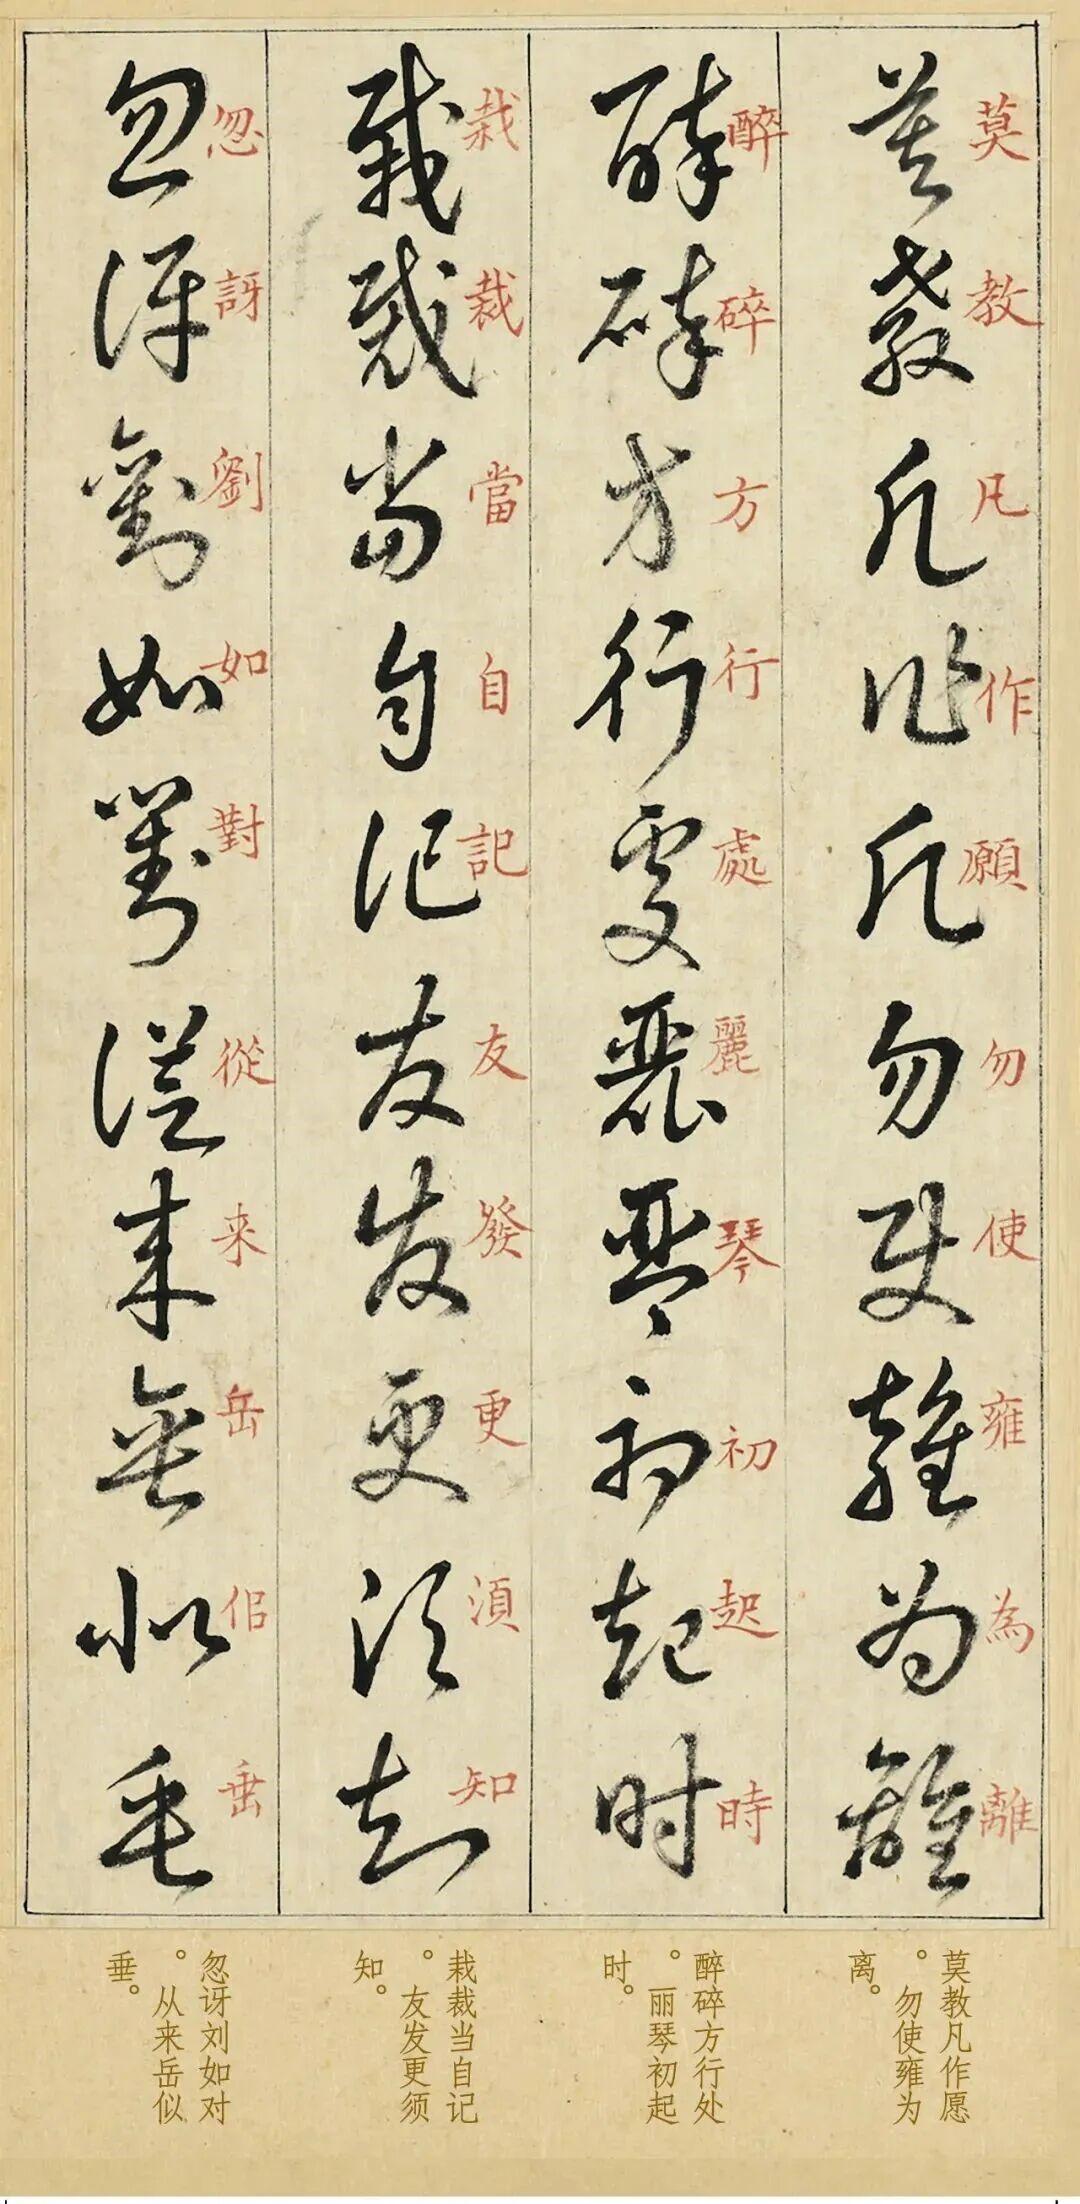 莫教凡作願勿使雍為離
莫教凡作願勿使雍為離
醉碎方行處麗琴初起時
醉碎方行處麗琴初起時
栽裁當自記友發更須知
栽裁當自記友發更湏知
忽訝劉如對從来岳似垂
忽訝劉如對從来岳佀垂
莫教凡作愿
。勿使雍为
离。
醉碎方行处
。丽琴初起
时。
栽裁当自记
。友发更须
知。
忽讶刘如对
。从来岳似
垂。